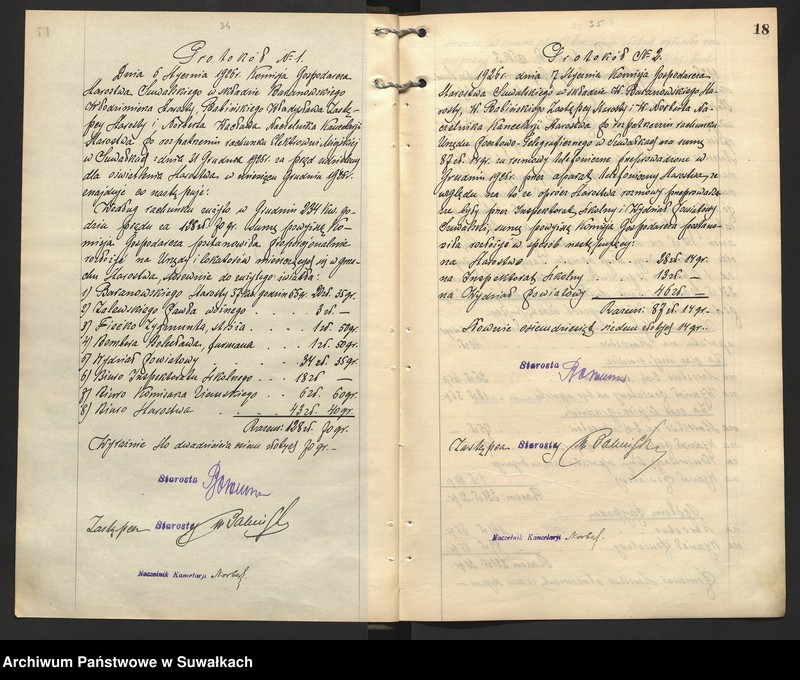 34
Protokół № 1.
Dnia 5 Stycznia 1926r. Komisja Gospodarcza
Starostwa Suwalskiego w składzie Baranowskiego
Włodzimierza Starosty, Bobińskiego Władysława Zastę-
pcy Starosty i Norberta Wacława Naczelnika Kancelarji
Starostwa po rozpatrzeniu rachunku Elektrowni Miejskiej
w Suwałkach z dnia 31 Grudnia 1925r. za prąd
dla oświetlenia Starostwa, w miesiącu Grudniu 1925r.
znajduje co następuje:
Według rachunku zużyto w Grudniu 234 kw. go-
dzin prądu za 128 zł. 70 gr. sumę powyższą Ko-
misja Gospodarcza postanowiła proporcjonalnie
rozłożyć na Urzędy i lokatorów mieszczących się w gma-
chu Starostwa, stosownie do zużytego światła:
1) Baranowskiego Starosty 37 kw. godzin 20 zł. 35 gr.
2) Zalewskiego Pawła woźnego . . . . 3 zł. —
3) Zygmunta, . . . 1 zł. 50 gr.
4) Bolesława, furmana . . . 1 zł. 50 gr.
5) Wydział Powiatowy . . . . 34 zł. 35 gr.
6) Biuro Inspektoratu Szkolnego . . . 18 zł —
7) Biuro Komisarza Ziemskiego . . . 6 zł. 60 gr.
8) Biuro Starostwa . . . . 43 zł. 40 gr.
Razem: 128 zł. 70 gr.
Wyraźnie sto dwadzieścia osiem złotych 70 gr. —
Starosta
Zastępca Starosty
Naczelnik Kancelarji Norbert
35
18
Protokół № 2.
1926r. dnia 7 Stycznia Komisja Gospodarcza
Starostwa Suwalskiego w składzie W. Baranowskiego Sta-
rosty, W. Bobińskiego Zastępcy Starosty i W. Norberta Na-
czelnika Kancelarji Starostwa po rozpatrzeniu rachunku
Urzędu Pocztowo-Telegraficznego w Suwałkach na sumę
87 zł. 14 gr. za rozmowy telefoniczne przeprowadzone w
Grudniu 1925r. przez aparat telefoniczny Starostwa, ze
względu na to że oprócz Starostwa rozmowy przeprowadza-
ne były przez Inspektorat Szkolny i Wydział Powiatowy
Suwalski, sumę powyższą Komisja Gospodarcza postano-
wiła rozłożyć w sposób następujący:
na Starostwo . . . . 28 zł. 14 gr.
na Inspektorat Szkolny . . . . 13 zł. —
na Wydział Powiatowy . . . . 46 zł. —
Razem: 87 zł. 14 gr. —
Słownie osiemdziesiąt siedem złotych 14 gr. —
Starosta
Zastępca Starosty
Naczelnik Kancelarji Norbert
Archiwum Państwowe w Suwałkach